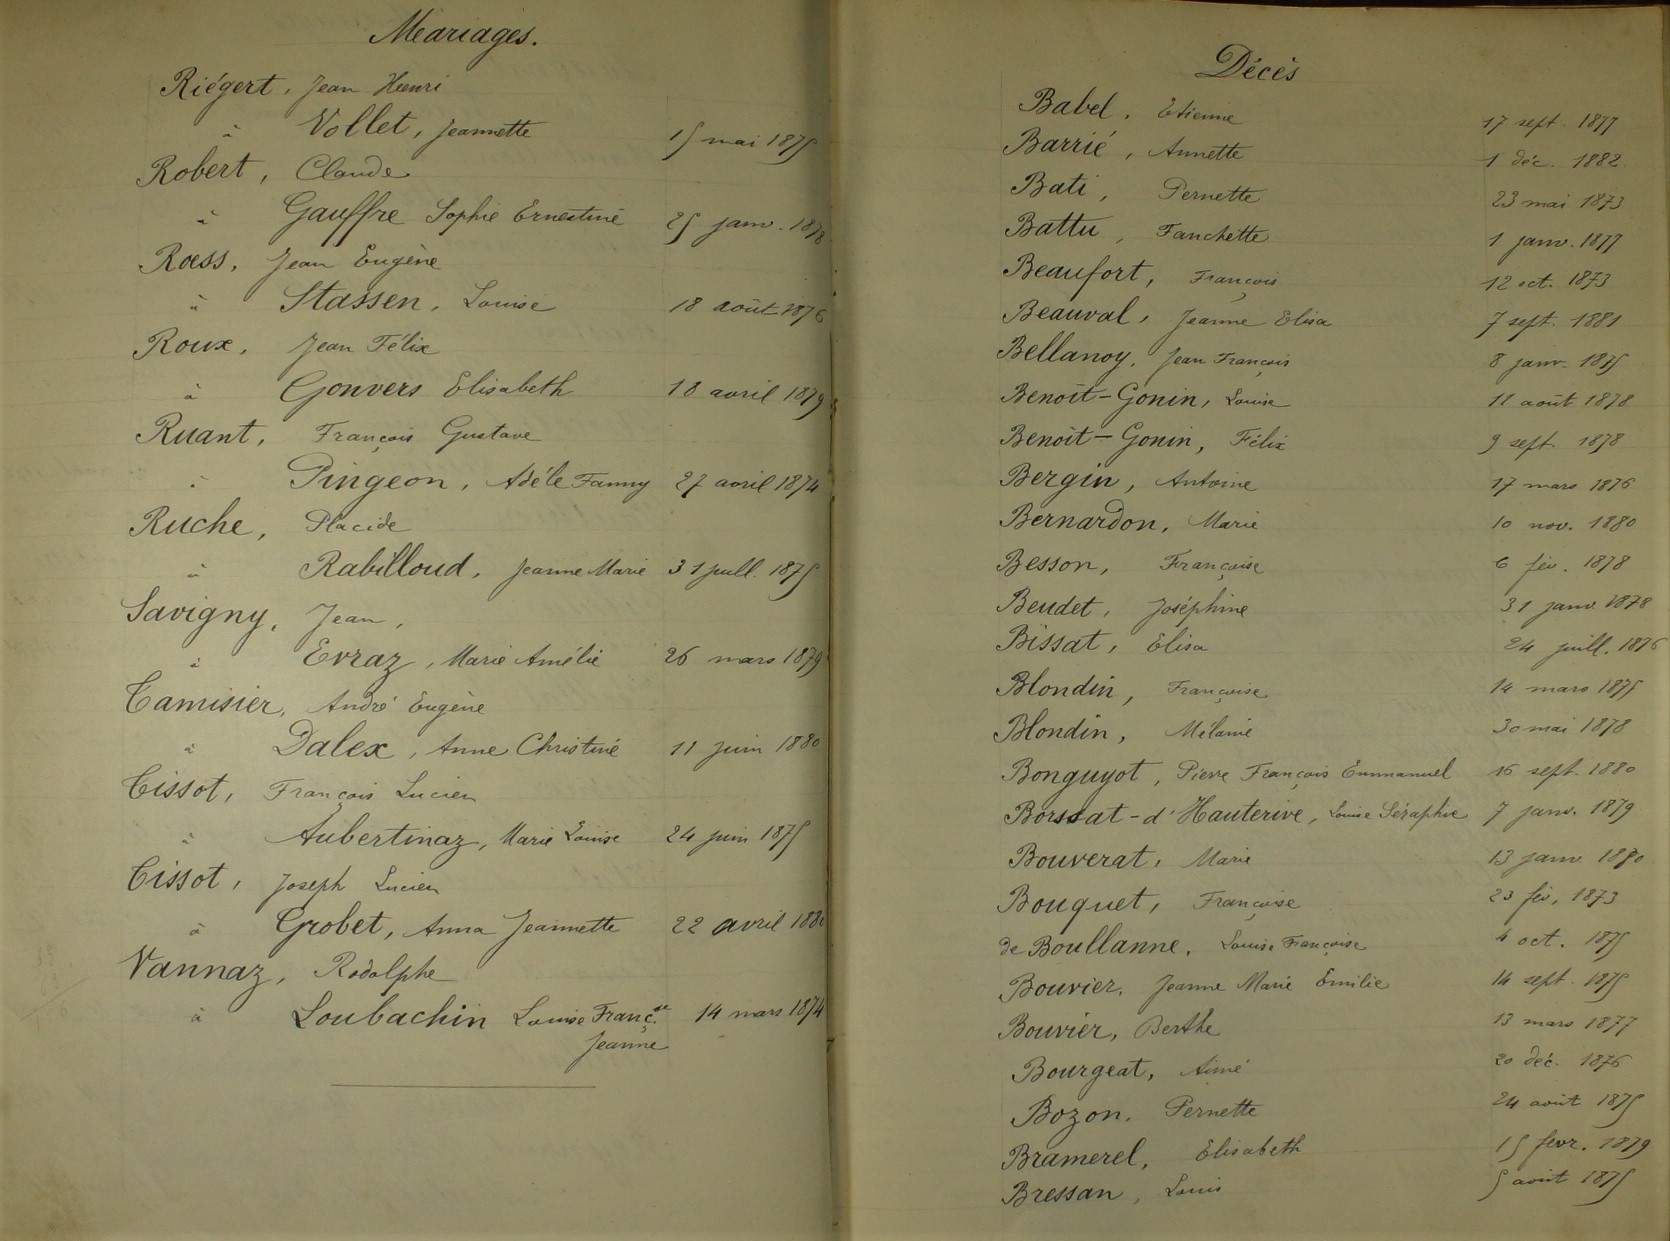 Mariages.
Riégert, Jean Henri
à Vollet, Jeannette 15 mai 1875
Robert, Claude
à Gauffre Sophie Ernestine 25 janv. 1878
Rœss, Jean Eugène
à Stassen, Louise 18 août 1876
Roux, Jean Félix
à Gonvers Elisabeth 18 avril 1879
Ruant, François Gustave
à Pingeon, Adèle Fanny 27 avril 1874
Ruche, Placide
à Rabilloud, Jeanne Marie 31 juill. 1875
Savigny, Jean,
à Evraz, Marie Amélie 26 mars 1879
Tamisier, André Eugène
à Dalex, Anne Christine 11 juin 1880
Tissot, François Lucien
à Aubertinaz, Marie Louise 24 juin 1875
Tissot, Joseph Lucien
à Grobet, Anna Jeannette 22 avril
Vannaz, Rodolphe
à Loubachin Louise Franç.se 14 mars 1874
Jeanne
Décès
Babel, Etienne 17 sept. 1877
Barrié, Annette 1 déc. 1882
Bati, Pernette 23 mai 1873
Battu, Fanchette 1 janv. 1877
Beaufort, François 12 oct. 1873
Beauval, Jeanne Elisa 7 sept. 1881
Bellanoy, Jean François 8 janv. 1875
Benoît-Gonin, Louise 11 août 1878
Benoît-Gonin, Félix 9 sept. 1878
Bergin, Antoine 17 mars 1876
Bernardon, Marie 10 nov. 1880
Besson, Françoise 6 fév. 1878
Beudet, Joséphine 31 janv. 1878
Bissat, Elisa 24 juill. 1876
Blondin, Françoise 14 mars 1875
Blondin, Mélanie 30 mai 1878
Bonguyot, Pierre François Emmanuel 16 sept. 1880
Borssat-d'Hauterive, Louise Séraphie 7 janv. 1879
Bouverat, Marie 13 janv. 1880
Bouquet, Françoise 23 fév. 1873
de Boullanne, Louise Françoise 4 oct. 1875
Bouvier, Jeanne Marie Emilie 14 sept. 1875
Bouvier, Berthe 13 mars 1877
Bourgeat, Aimé 20 déc. 1876
Bozon, Pernette 24 août 1875
Bramerel, Elisabeth 15 fevr. 1879
Bressan, Louis 5 août 1875